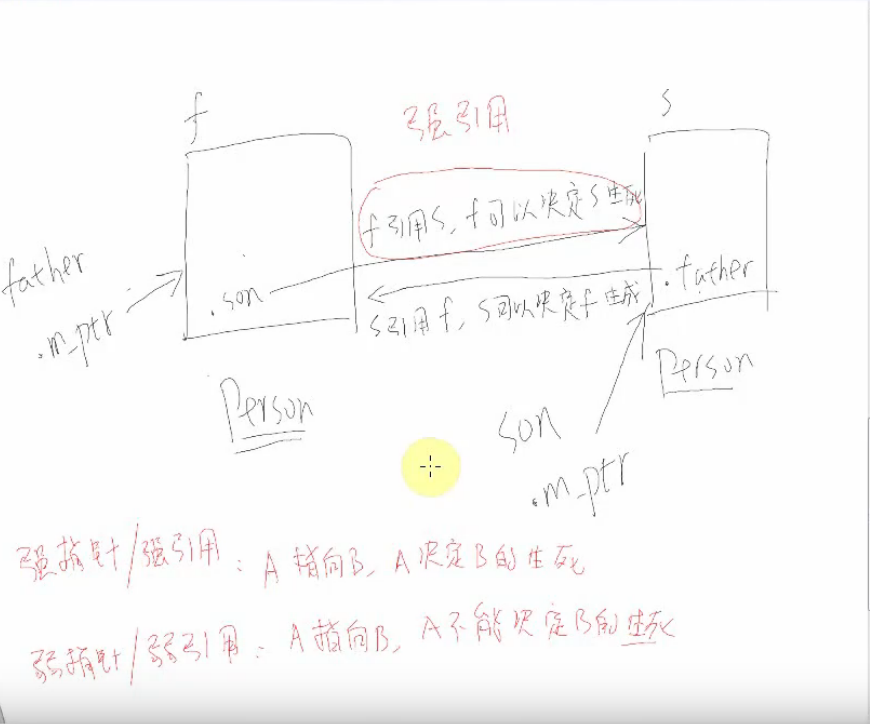 f
s
强引用
f引用s，f可以决定s生死
father
.m_ptr
.son
.father
s引用f，s可以决定f生成
Person
Person
son
.m_ptr
强指针/强引用：A指向B，A决定B的生死
弱指针/弱引用：A指向B，A不能决定B的生死